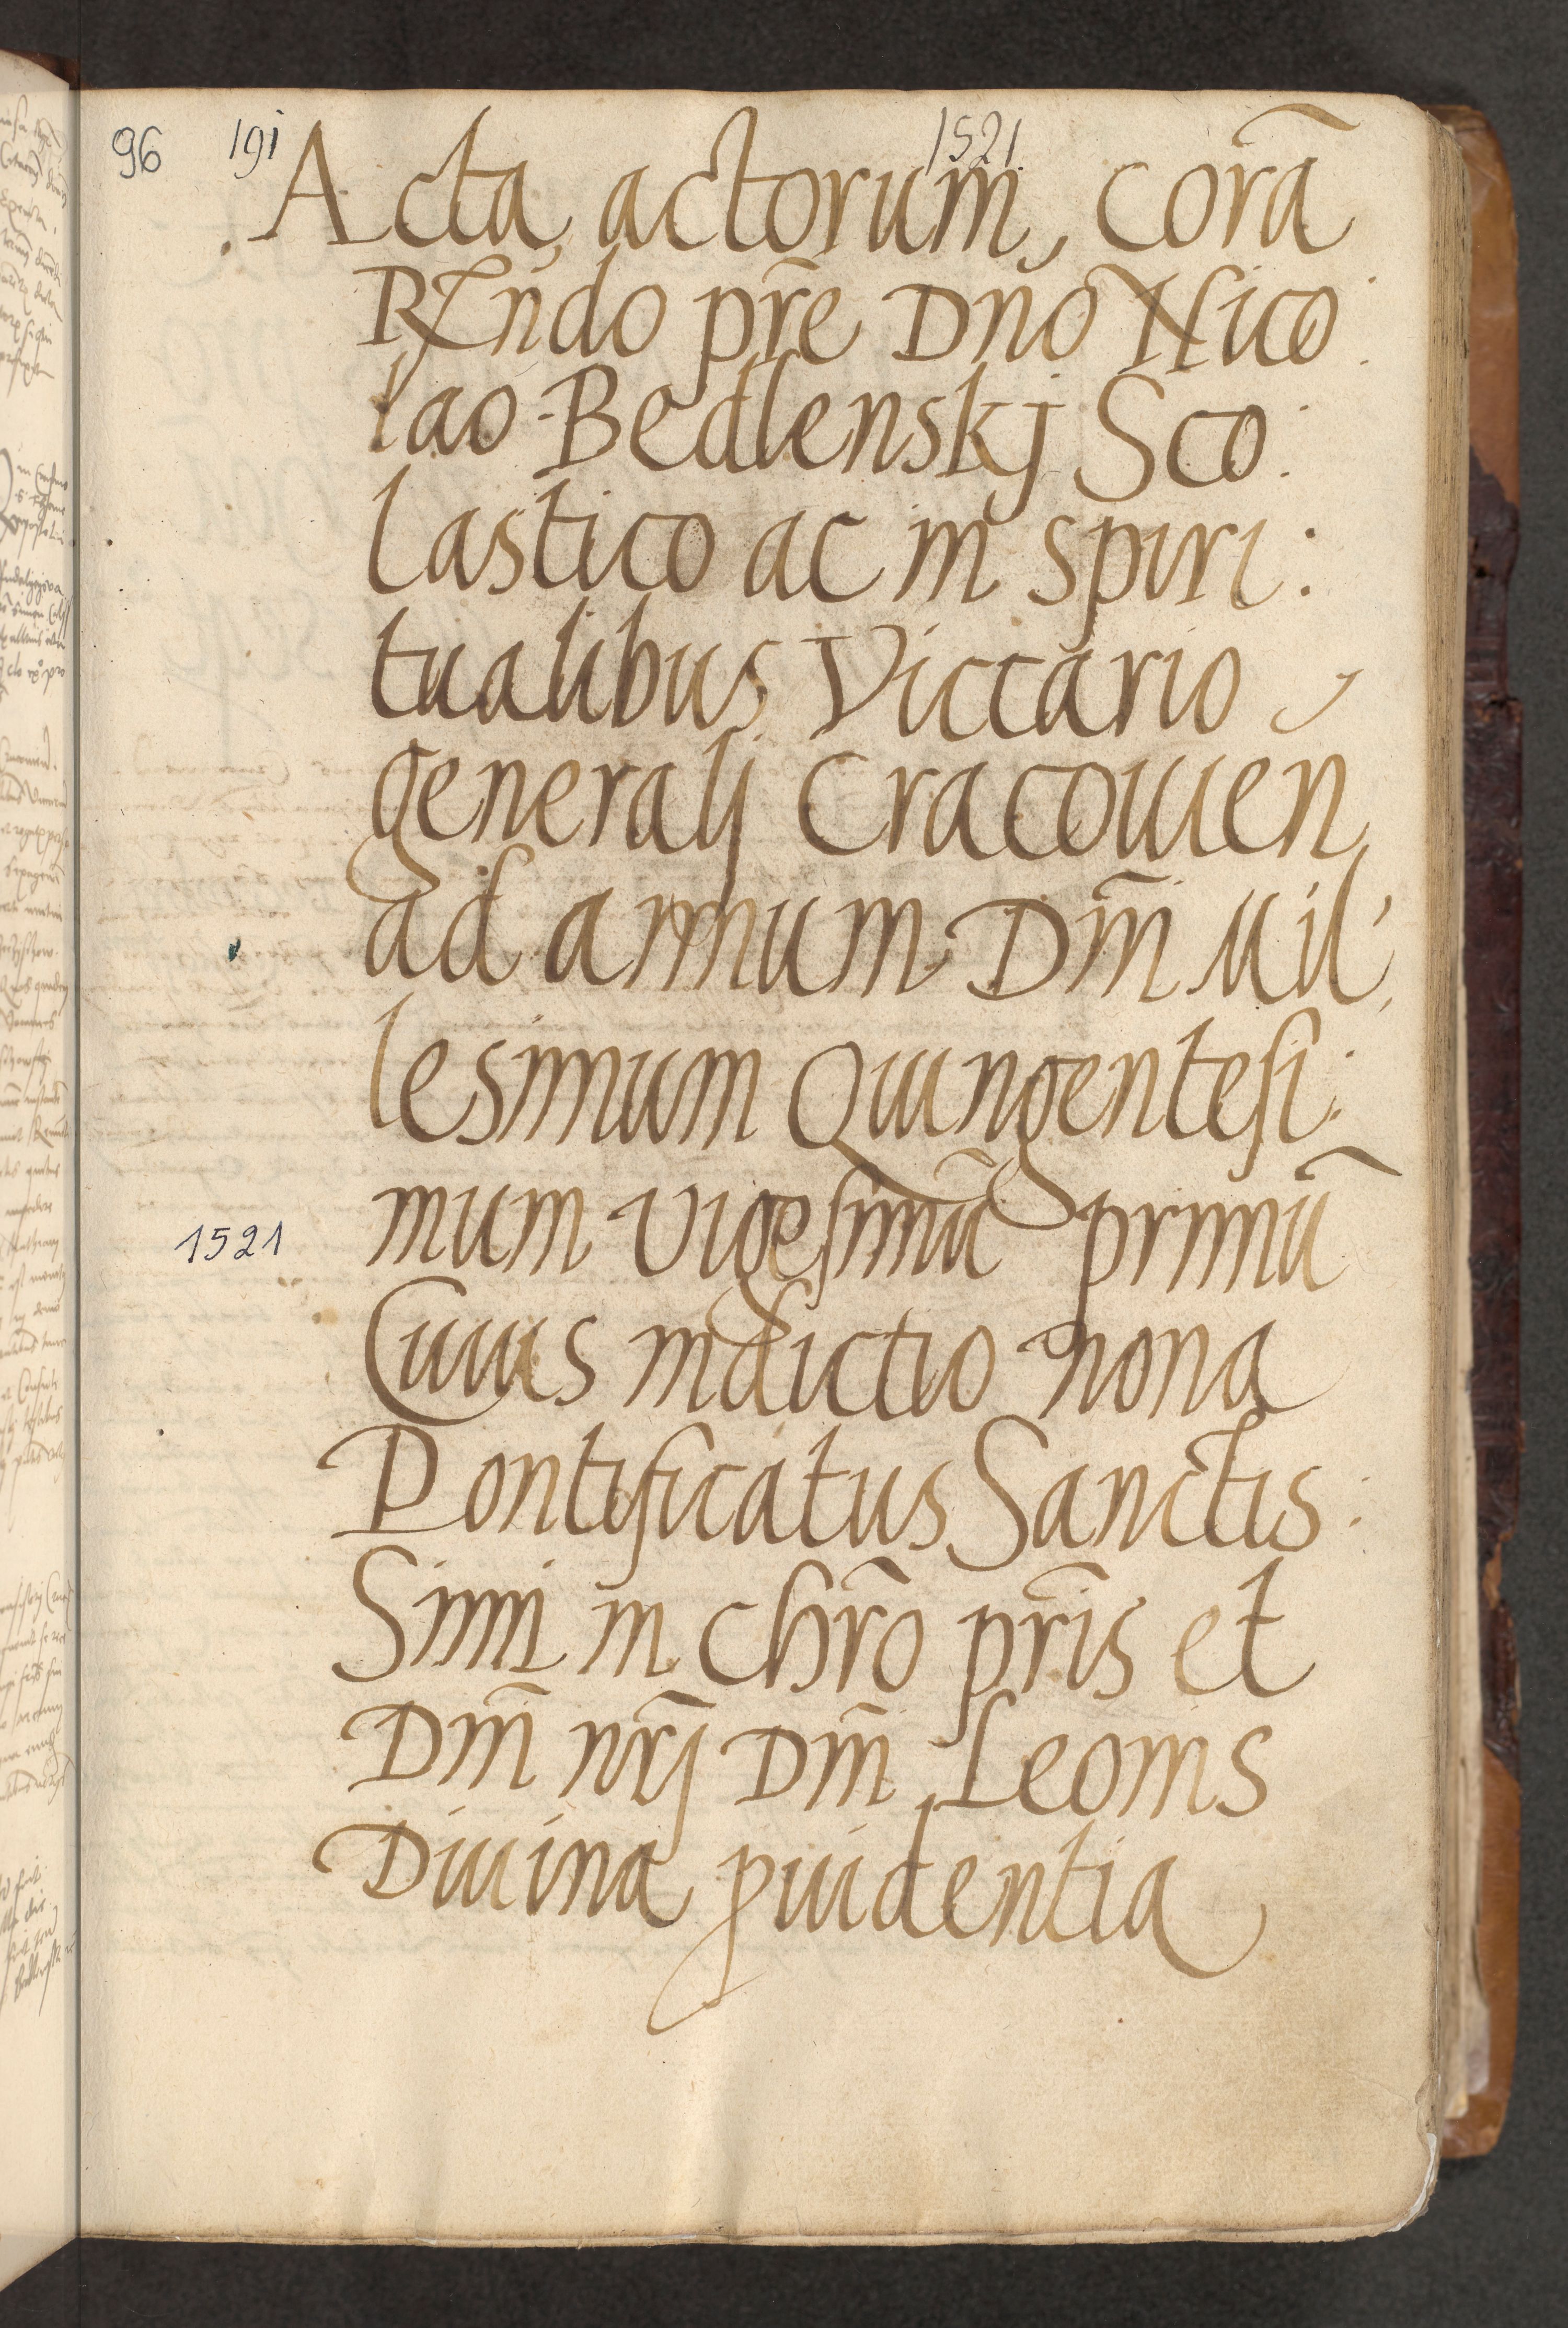 96 191 1521.
Acta actorum, corã
Rñdo pr̃e Dño Nico:
lao Bedlenskj Sco:
lastico ac in spiri:
tualibus Viccario
generalj Cracouien
ad annum Dñi Mil:
lesimum Quingentesi:
mum vigesimũ primũ
1521
Cuius indictio nona
Pontificatus Sanctis:
Simi in chr̃o pr̃is et
Dñi nr̃j Dñi Leonis
Diuina ꝓuidentia